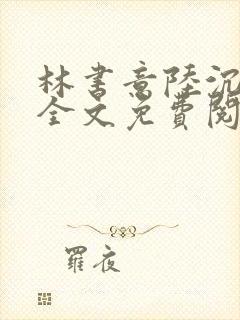 林书意陸沉
全文免費閱
羅夜